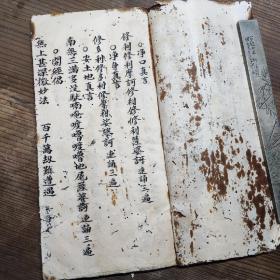 ○淨口真言
修利修利摩訶修利修修利薩婆訶 連誦三遍
○淨身真言
修多利修多利修摩利娑婆訶 連誦三遍
○安土地真言
南無三滿多沒馱喃唵喥嚕喥嚕地尾薩婆訶 連誦三遍
○開經偈
無上甚深微妙法 百千萬劫難遭遇